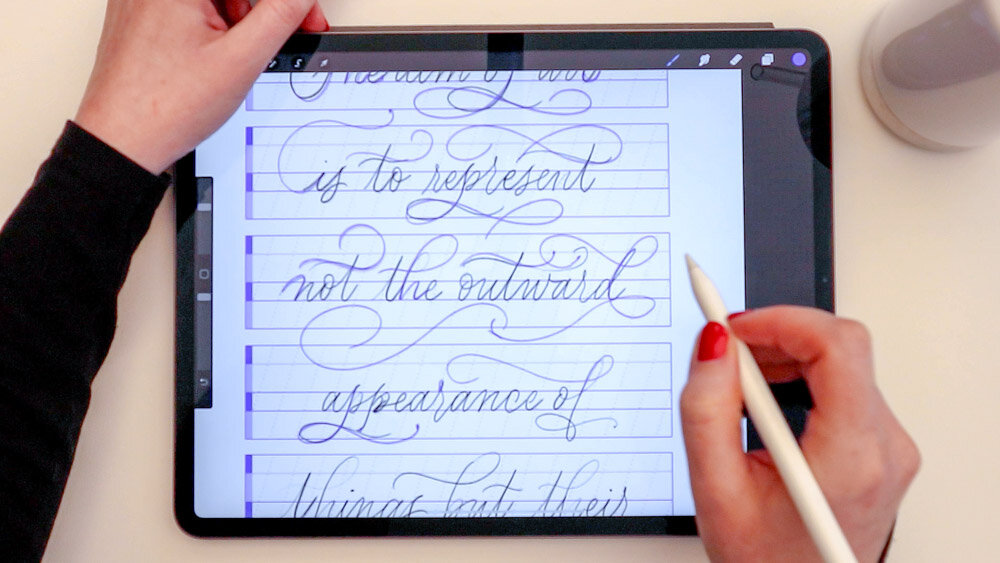 The aim of art
is to represent
not the outward
appearance of
things but their